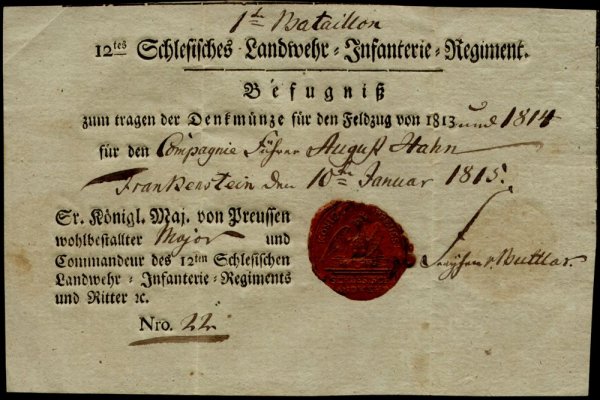 1te Bataillon
12tes Schlesisches Landwehr-Infanterie-Regiment.
Befugniß
zum tragen der Denkmünze für den Feldzug von 1813 und 1814
für den Compagnie Führer August Hahn
Frankenstein den 10ten Januar 1815.
Sr. Königl. Maj. von Preussen
wohlbestallter Major und
Commandeur des 12ten Schlesischen
Landwehr-Infanterie-Regiments
und Ritter ꝛc.
v. Buttlar.
Nro. 22